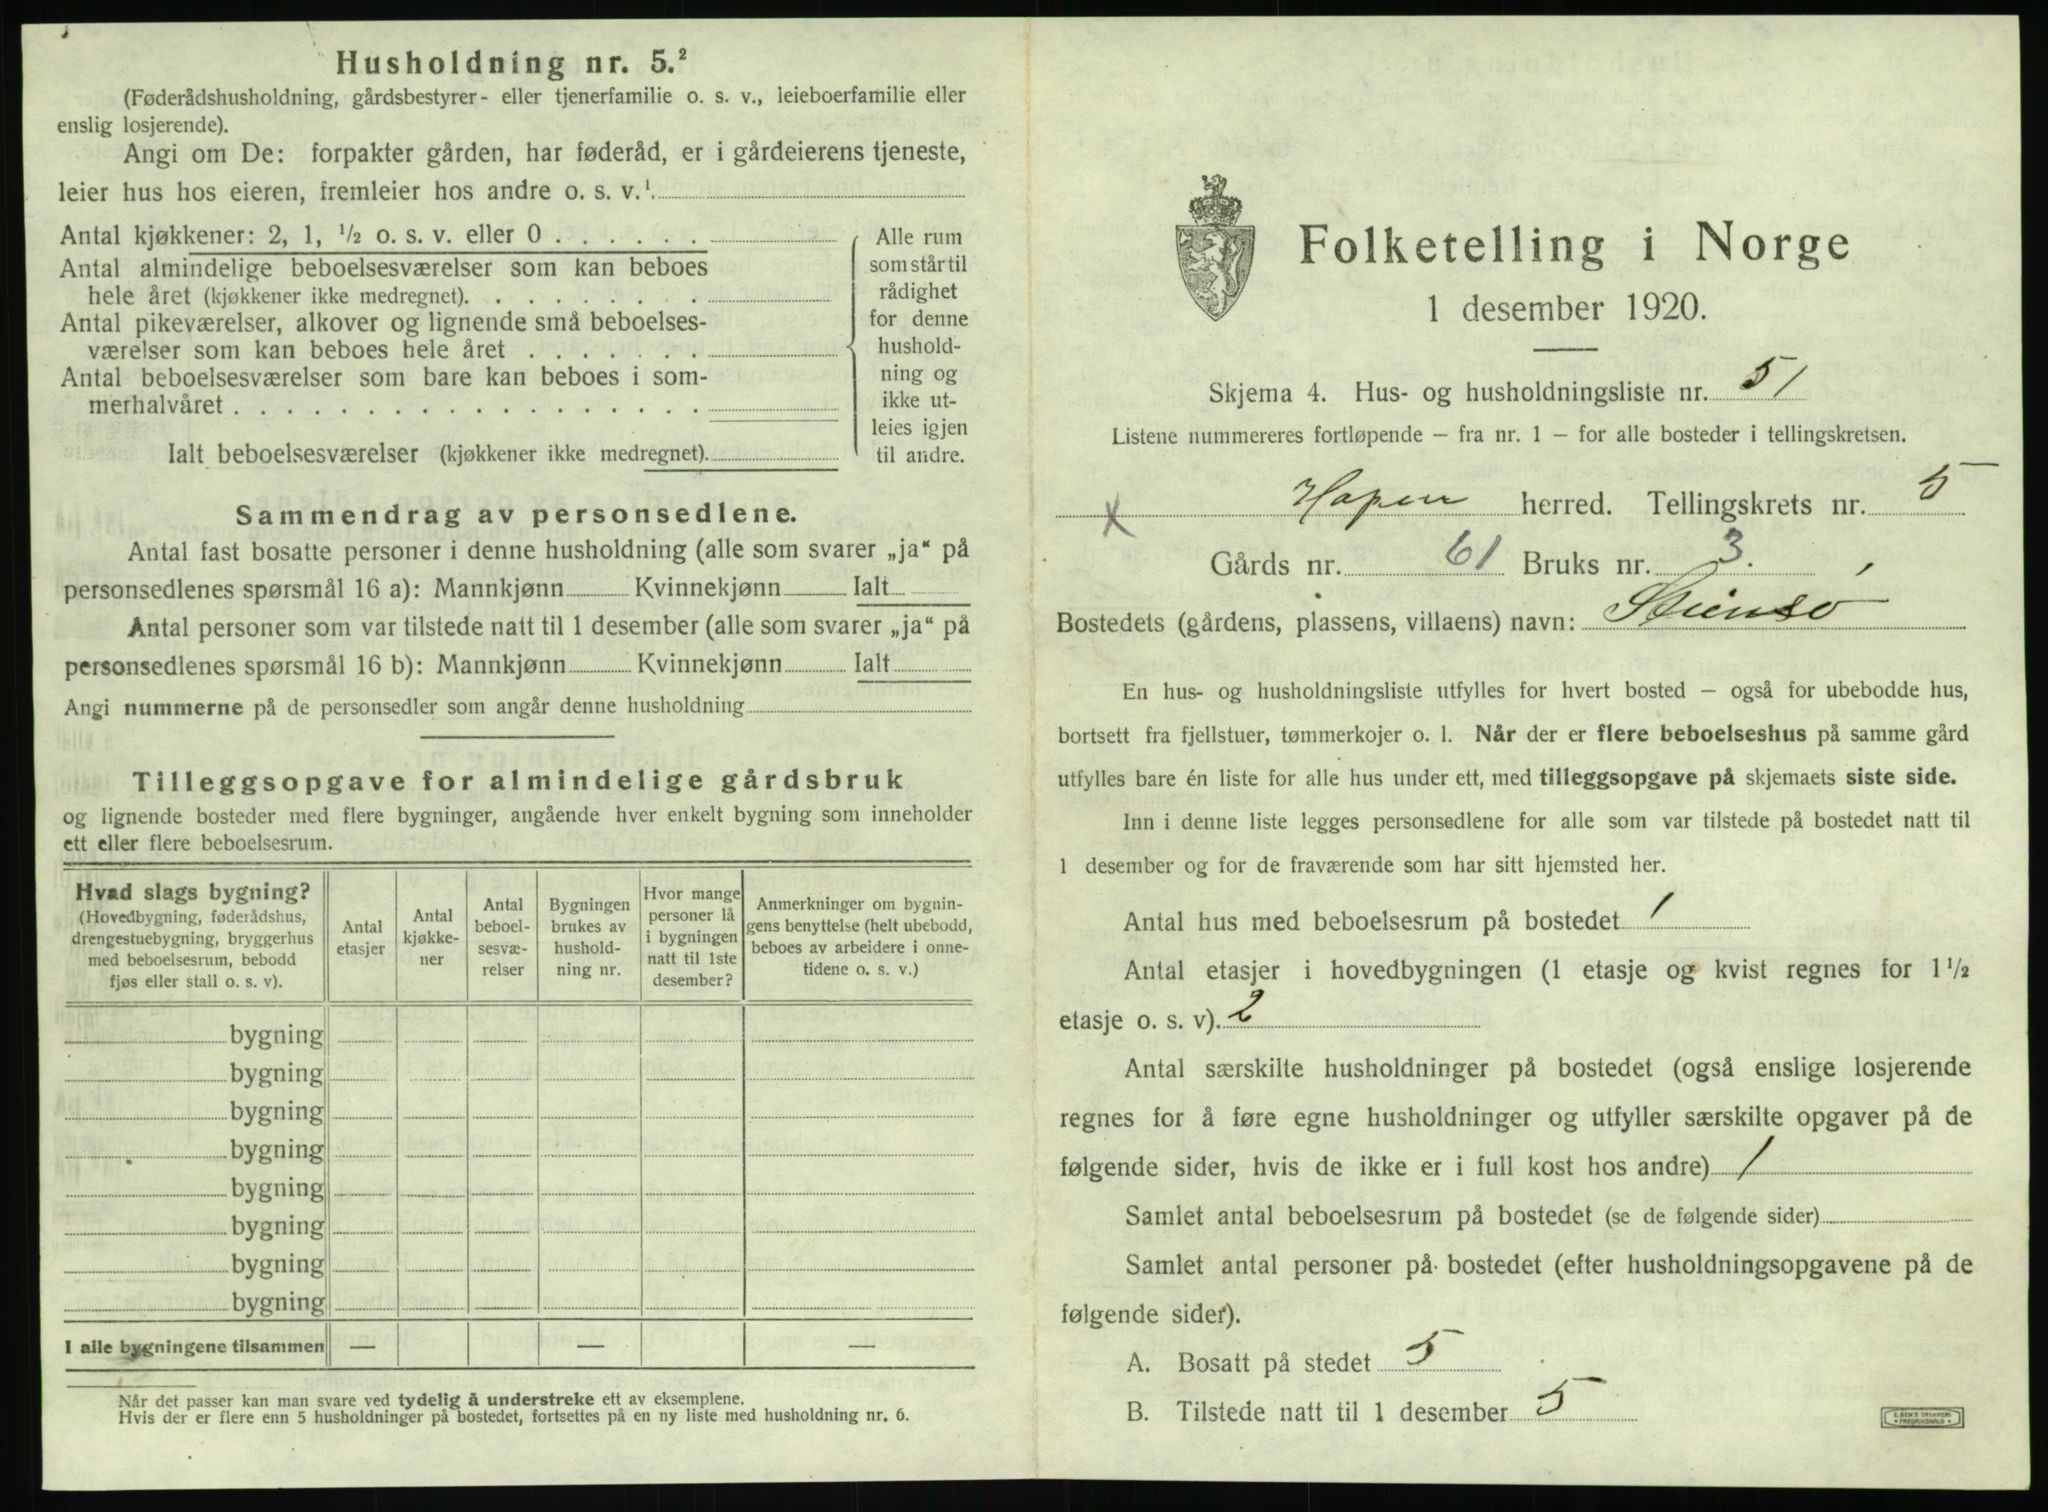 Husholdning nr. 5.²
(Føderådshusholdning, gårdsbestyrer- eller tjenerfamilie o. s. v., leieboerfamilie eller
enslig losjerende).
Angi om De: forpakter gården, har føderåd, er i gårdeierens tjeneste,
leier hus hos eieren, fremleier hos andre o. s. v.¹
Antal kjøkkener: 2, 1, ½ o. s. v. eller 0 . . . . . .
Antal almindelige beboelsesværelser som kan beboes
hele året (kjøkkener ikke medregnet). . . . . . . . .
Antal pikeværelser, alkover og lignende små beboelses-
værelser som kan beboes hele året . . . . . . .
Antal beboelsesværelser som bare kan beboes i som-
merhalvåret . . . . . . . . . . . . . . . . . .
Ialt beboelsesværelser (kjøkkener ikke medregnet).
Alle rum
som står til
rådighet
for denne
hushold-
ning og
ikke ut-
leies igjen
til andre.
Sammendrag av personsedlene.
Antal fast bosatte personer i denne husholdning (alle som svarer „ja“ på
personsedlenes spørsmål 16 a): Mannkjønn Kvinnekjønn Ialt
Antal personer som var tilstede natt til 1 desember (alle som svarer „ja“ på
personsedlenes spørsmål 16 b): Mannkjønn Kvinnekjønn Ialt
Angi nummerne på de personsedler som angår denne husholdning
Tilleggsopgave for almindelige gårdsbruk
og lignende bosteder med flere bygninger, angående hver enkelt bygning som inneholder
ett eller flere beboelsesrum.
Hvad slags bygning?
(Hovedbygning, føderådshus,
drengestuebygning, bryggerhus
med beboelsesrum, bebodd
fjøs eller stall o. s. v).
Antal
etasjer
Antal
kjøkke-
ner
Antal
beboel-
sesvæ-
relser
Bygningen
brukes av
hushold-
ning nr.
Hvor mange
personer lå
i bygningen
natt til 1ste
desember?
Anmerkninger om bygnin-
gens benyttelse (helt ubebodd,
beboes av arbeidere i onne-
tidene o. s. v.)
bygning
bygning
bygning
bygning
bygning
bygning
bygning
bygning
I alle bygningene tilsammen — — —
Når det passer kan man svare ved tydelig å understreke ett av eksemplene.
Hvis der er flere enn 5 husholdninger på bostedet, fortsettes på en ny liste med husholdning nr. 6.
Folketelling i Norge
1 desember 1920.
Skjema 4. Hus- og husholdningsliste nr. 51
Listene nummereres fortløpende – fra nr. 1 – for alle bosteder i tellingskretsen.
x Hopen herred. Tellingskrets nr. 5
Gårds nr. 61 Bruks nr. 3.
Bostedets (gårdens, plassens, villaens) navn: Stensö
En hus- og husholdningsliste utfylles for hvert bosted – også for ubebodde hus,
bortsett fra fjellstuer, tømmerkojer o. l. Når der er flere beboelseshus på samme gård
utfylles bare én liste for alle hus under ett, med tilleggsopgave på skjemaets siste side.
Inn i denne liste legges personsedlene for alle som var tilstede på bostedet natt til
1 desember og for de fraværende som har sitt hjemsted her.
Antal hus med beboelsesrum på bostedet 1
Antal etasjer i hovedbygningen (1 etasje og kvist regnes for 1½
etasje o. s. v). 2
Antal særskilte husholdninger på bostedet (også enslige losjerende
regnes for å føre egne husholdninger og utfyller særskilte opgaver på de
følgende sider, hvis de ikke er i full kost hos andre) 1
Samlet antal beboelsesrum på bostedet (se de følgende sider)
Samlet antal personer på bostedet (efter husholdningsopgavene på de
følgende sider).
A. Bosatt på stedet 5
B. Tilstede natt til 1 desember 5